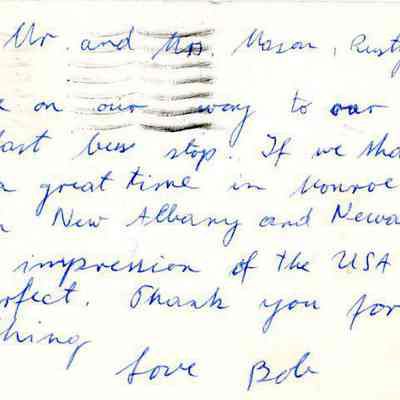 Mr. and Mrs Mason, Rusty
e on our way to our
last bus stop. If we tha
a great time in Monroe
n New Albany and Newa
impression of the USA
rfect. Thank you for
thing
Love Bob